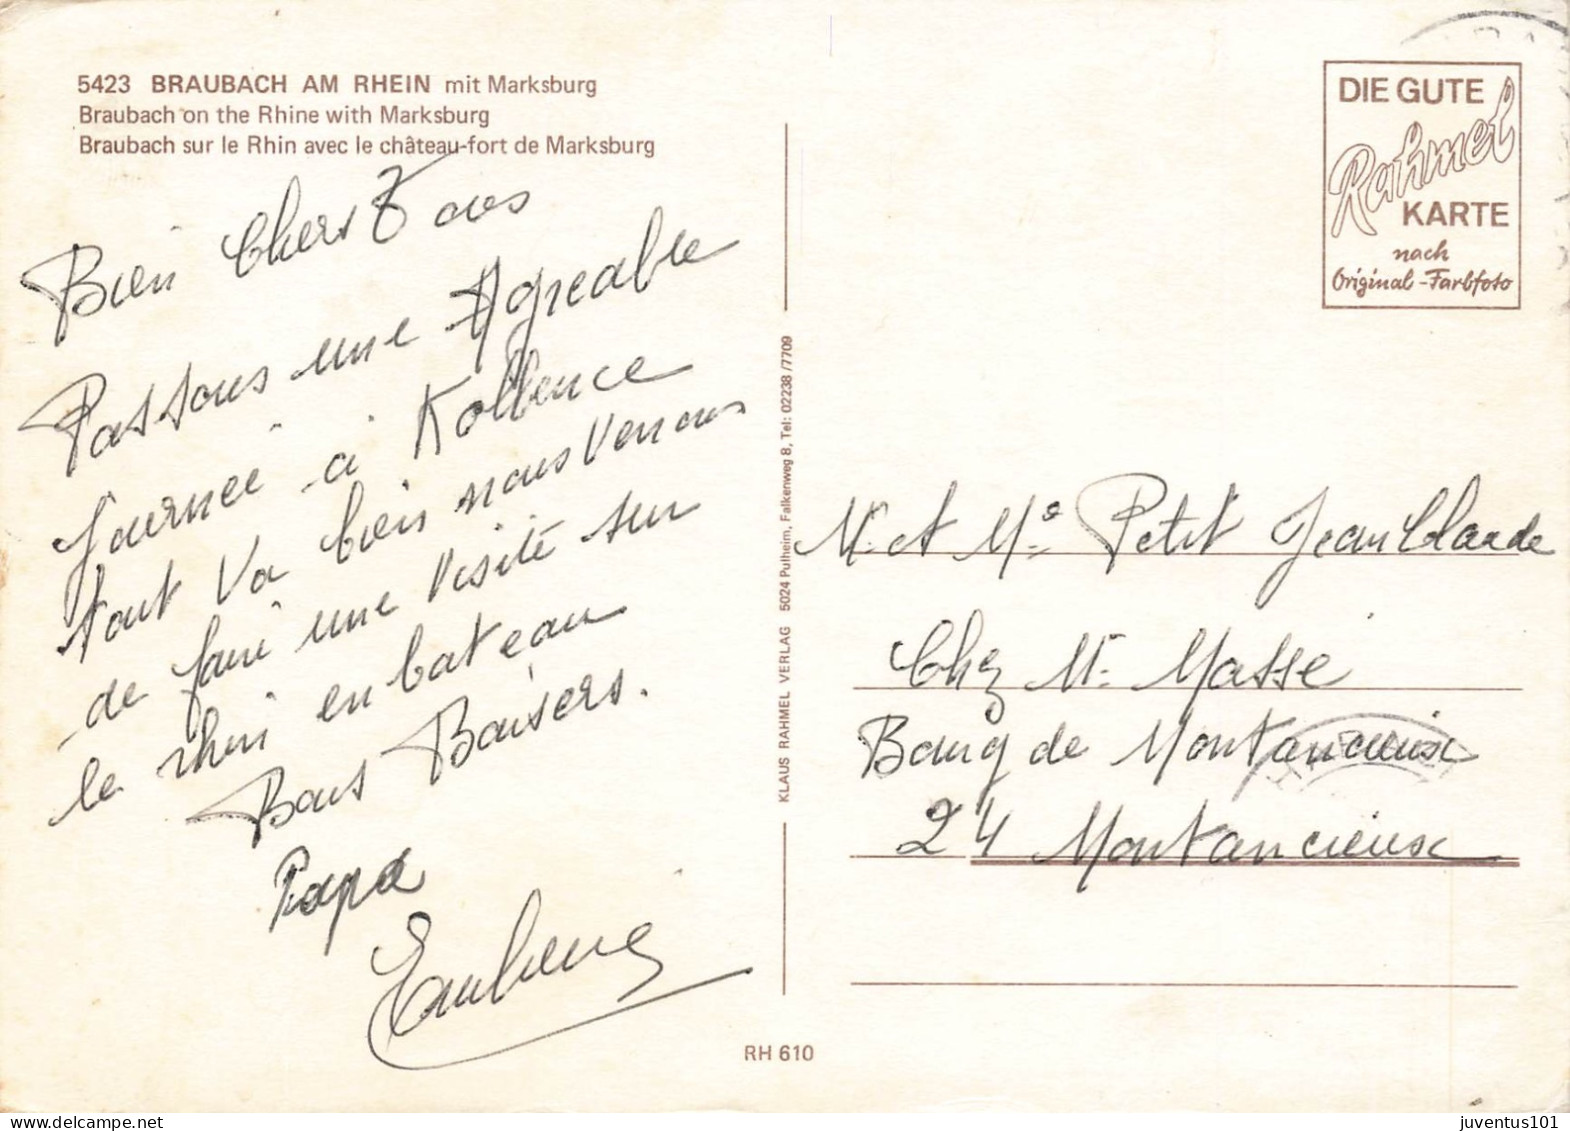 5423 BRAUBACH AM RHEIN mit Marksburg
Braubach on the Rhine with Marksburg
Braubach sur le Rhin avec le château-fort de Marksburg
Bien Chers Tous
Passons une Agreable
Journeé à Kolbence
tout va bien nous Venons
de faire une Visite sur
le rhin en bateau
Bons Baisers.
Papa
DIE GUTE
Rahmel
KARTE
nach
Original-Farbfoto
KLAUS RAHMEL VERLAG 5024 Pulheim, Falkenweg 8, Tel: 02238/7709
Mr et Me Petit Jean Claude
Chez Mr Masse
Bourg de Montancieux
24 Montancieux
RH 610
juventus101